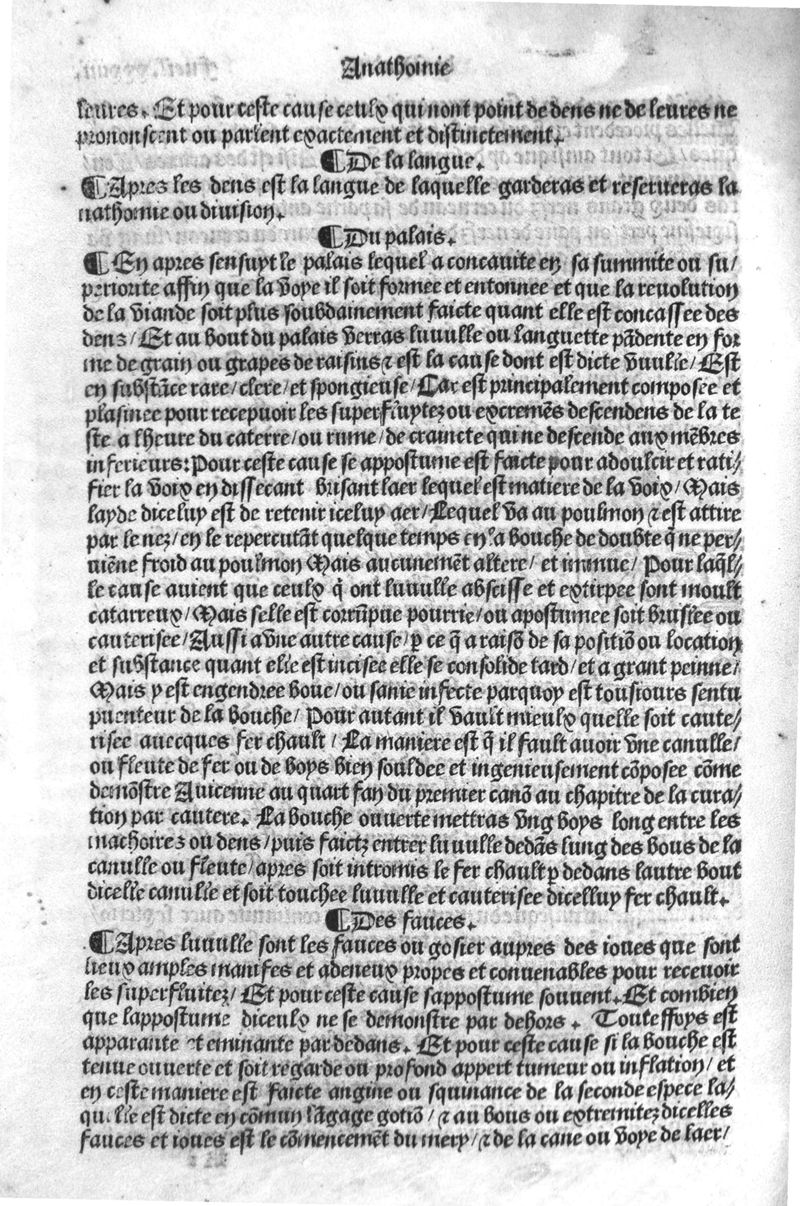 Anathomie
leures. Et pour ceste cause ceulx qui nont point de dens ne de leures ne
prononscent ou parlent exactement et distinctement.
¶ De la langue.
¶ Apres les dens est la langue de laquelle garderas et reserueras la
nathomie ou diuision.
¶ Du palais.
¶ En apres sensuyt le palais lequel a concauite en sa summite ou su/
periorite affin que la voye il soit formee et entonnee et que la reuolution
de la viande soit plus soubdainement faicte quant elle est concassee des
dens/ Et au bout du palais verras luuulle ou languette pādente en for
me de grain ou grapes de raisins ⁊ est la cause dont est dicte vuulle/ Est
en substāce rare/clere/et spongieuse/ Car est principalement composee et
plasinee pour recepuoir les superfluytez ou excremēs descendens de la te
ste a lheure du caterre/ou rume/de craincte qui ne descende aux mēbres
inferieurs: Pour ceste cause se appostume est faicte pour adoulcir et rati/
fier la voix en dissecant brisant laer lequel est matiere de la voix/ Mais
layde diceluy est de retenir iceluy aer/ Lequel va au poulmon ⁊ est attire
par le nez/en le repercutāt quelque temps en la bouche de doubte q̄ ne per/
uiēne froid au poulmon Mais aucunemēt altere/ et immue/ Pour laq̄l/
le cause auient que ceulx q̄ ont luuulle abscisse et extirpee sont moult
catarreux/ Mais selle est corrūpue pourrie/ou apostumee soit bruslee ou
cauterisee/ Aussi a vne autre cause/ p ce q̄ a raisō de sa positiō ou location
et substance quant elle est incisee elle se consolide tard/et a grant peinne/
Mais y est engendree boue/ou sanie infecte parquoy est tousiours sentu
puenteur de la bouche/ Pour autant il vault mieulx quelle soit caute/
risee auecques fer chault/ La maniere est q̄ il fault auoir vne canulle/
ou fleute de fer ou de boys bien souldee et ingenieusement cōposee cōme
demōstre Auicenne au quart fan du premier canō au chapitre de la cura/
tion par cautere. La bouche ouuerte mettras vng boys long entre les
machoires ou dens/puis faictz entrer luuulle dedās lung des bous de la
canulle ou fleute/apres soit intromis le fer chault p dedans lautre bout
dicelle canulle et soit touchee luuulle et cauterisee dicelluy fer chault.
¶ Des fauces.
¶ Apres luuulle sont les fauces ou gosier aupres des ioues que sont
lieux amples manifes et adeneux propes et conuenables pour receuoir
les superfluitez/ Et pour ceste cause sappostume souuent. Et combien
que lappostume diceulx ne se demonstre par dehors. Touteffoys est
apparante et eminante par dedans. Et pour ceste cause si la bouche est
tenue ouuerte et soit regarde ou profond appert tumeur ou inflation/ et
en ceste maniere est faicte angine ou squinance de la seconde espece la/
quelle est dicte en cōmun lāgage gotiō/ ⁊ au bous ou extremitez dicelles
fauces et ioues est le cōmencemēt du mery/ ⁊ de la cane ou voye de laer/